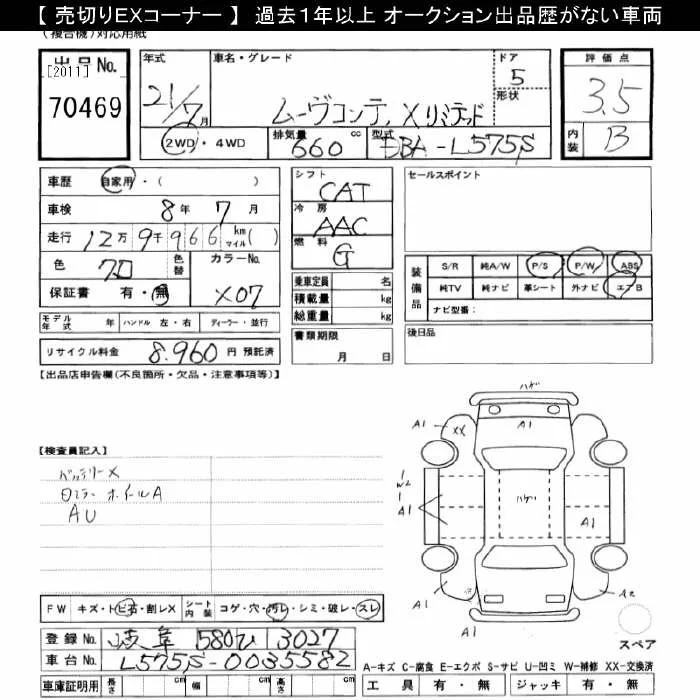 【 売切りEXコーナー 】 過去1年以上 オークション出品歴がない車両
(複合機)対応用紙
出品No.
[2011]
70469
年式
21/7月
車名・グレード
ムーヴコンテ, Xリミテッド
ドア
5
形状
2WD・4WD
排気量
660 cc
型式
DBA-L575S
評価点
3.5
内装
B
車歴 自家用・( )
車検 8年 7月
走行 12万9千966 km マイル( )
色 クロ
色替
カラーNo.
X07
保証書 有・無
シフト
CAT
冷房
AAC
燃料
G
乗車定員 名
積載量 kg
総重量 kg
書類期限
月 日
セールスポイント
装備品
S/R 純A/W P/S P/W ABS
純TV 純ナビ 革シート 外ナビ エアB
ナビ型番:
後日品
モデル年式 年 ハンドル 左・右 ディーラー・並行
リサイクル料金 8,960 円 預託済
【出品店申告欄(不良箇所・欠品・注意事項等)】
【検査員記入】
バッテリーX
ロミラー ホイールA
AU
ハゲ
A1
XX
A1
A1
1
W2
1
A1
ハゲ
A1
A1
A2
A1
スペア
FW キズ・トビ石・割レX
シート内装 コゲ・穴・汚レ・シミ・破レ・スレ
登録No. 岐阜 580ひ3027
車台No. L575S-0035582
車庫証明用 長さ cm 幅 cm 高さ cm
A-キズ C-腐食 E-エクボ S-サビ U-凹ミ W-補修 XX-交換済
工具 有・無 ジャッキ 有・無